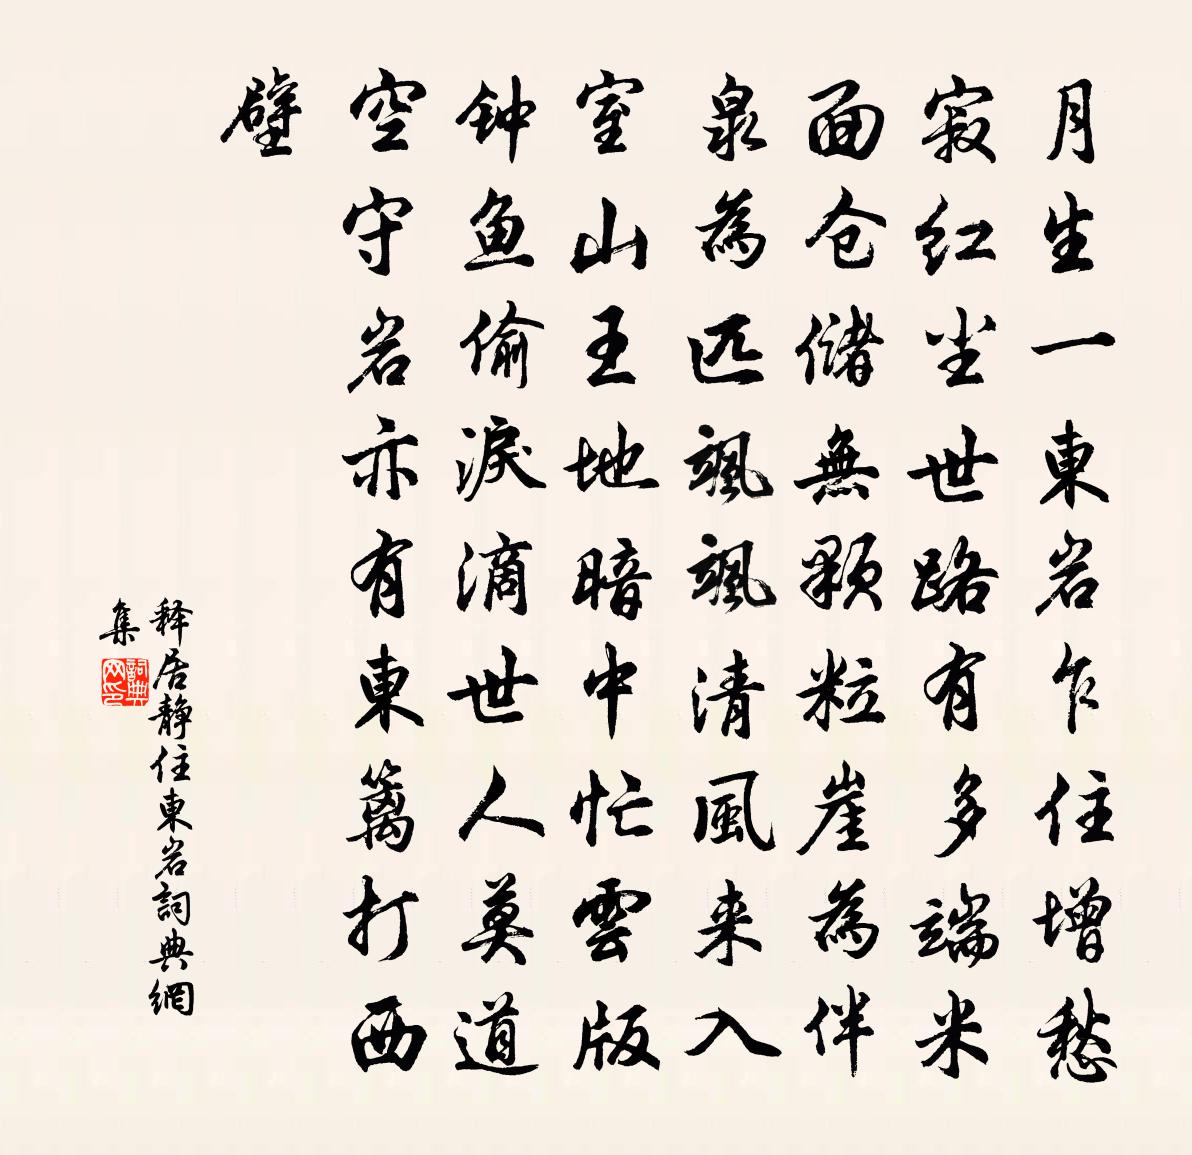 月生一東岩乍住增愁
寂红尘世路有多端米
面仓储無顆粒崖為伴
泉為匹飒飒清風来入
室山王地暗中忙雲版
钟鱼偷淚滴世人莫道
空守岩亦有東篱打西
壁
释居静住東岩詞典網
集
詞典网印